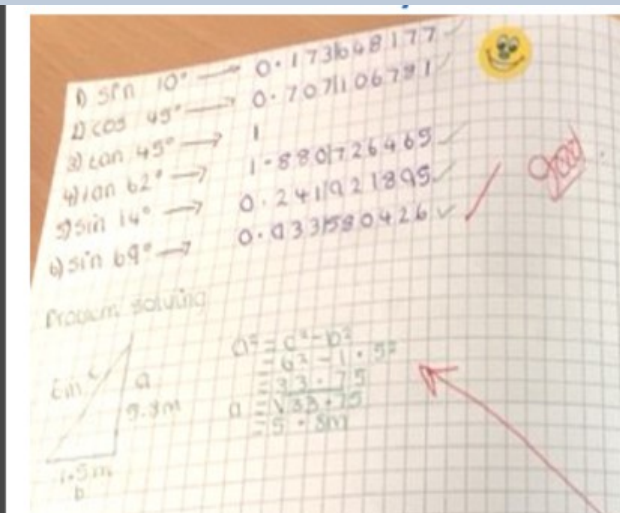 1) sin 10° → 0.173648177 ✓
2) cos 45° → 0.707106781 ✓
3) tan 45° → 1
4) tan 62° → 1.880726465 ✓
5) sin 14° → 0.241921895 ✓
6) sin 69° → 0.933580426 ✓
good.
Problem solving
6m c
a
5.8m
1.5m
b
a² = c² - b²
= 6² - 1.5²
= 33.75
a = √33.75
= 5.8m